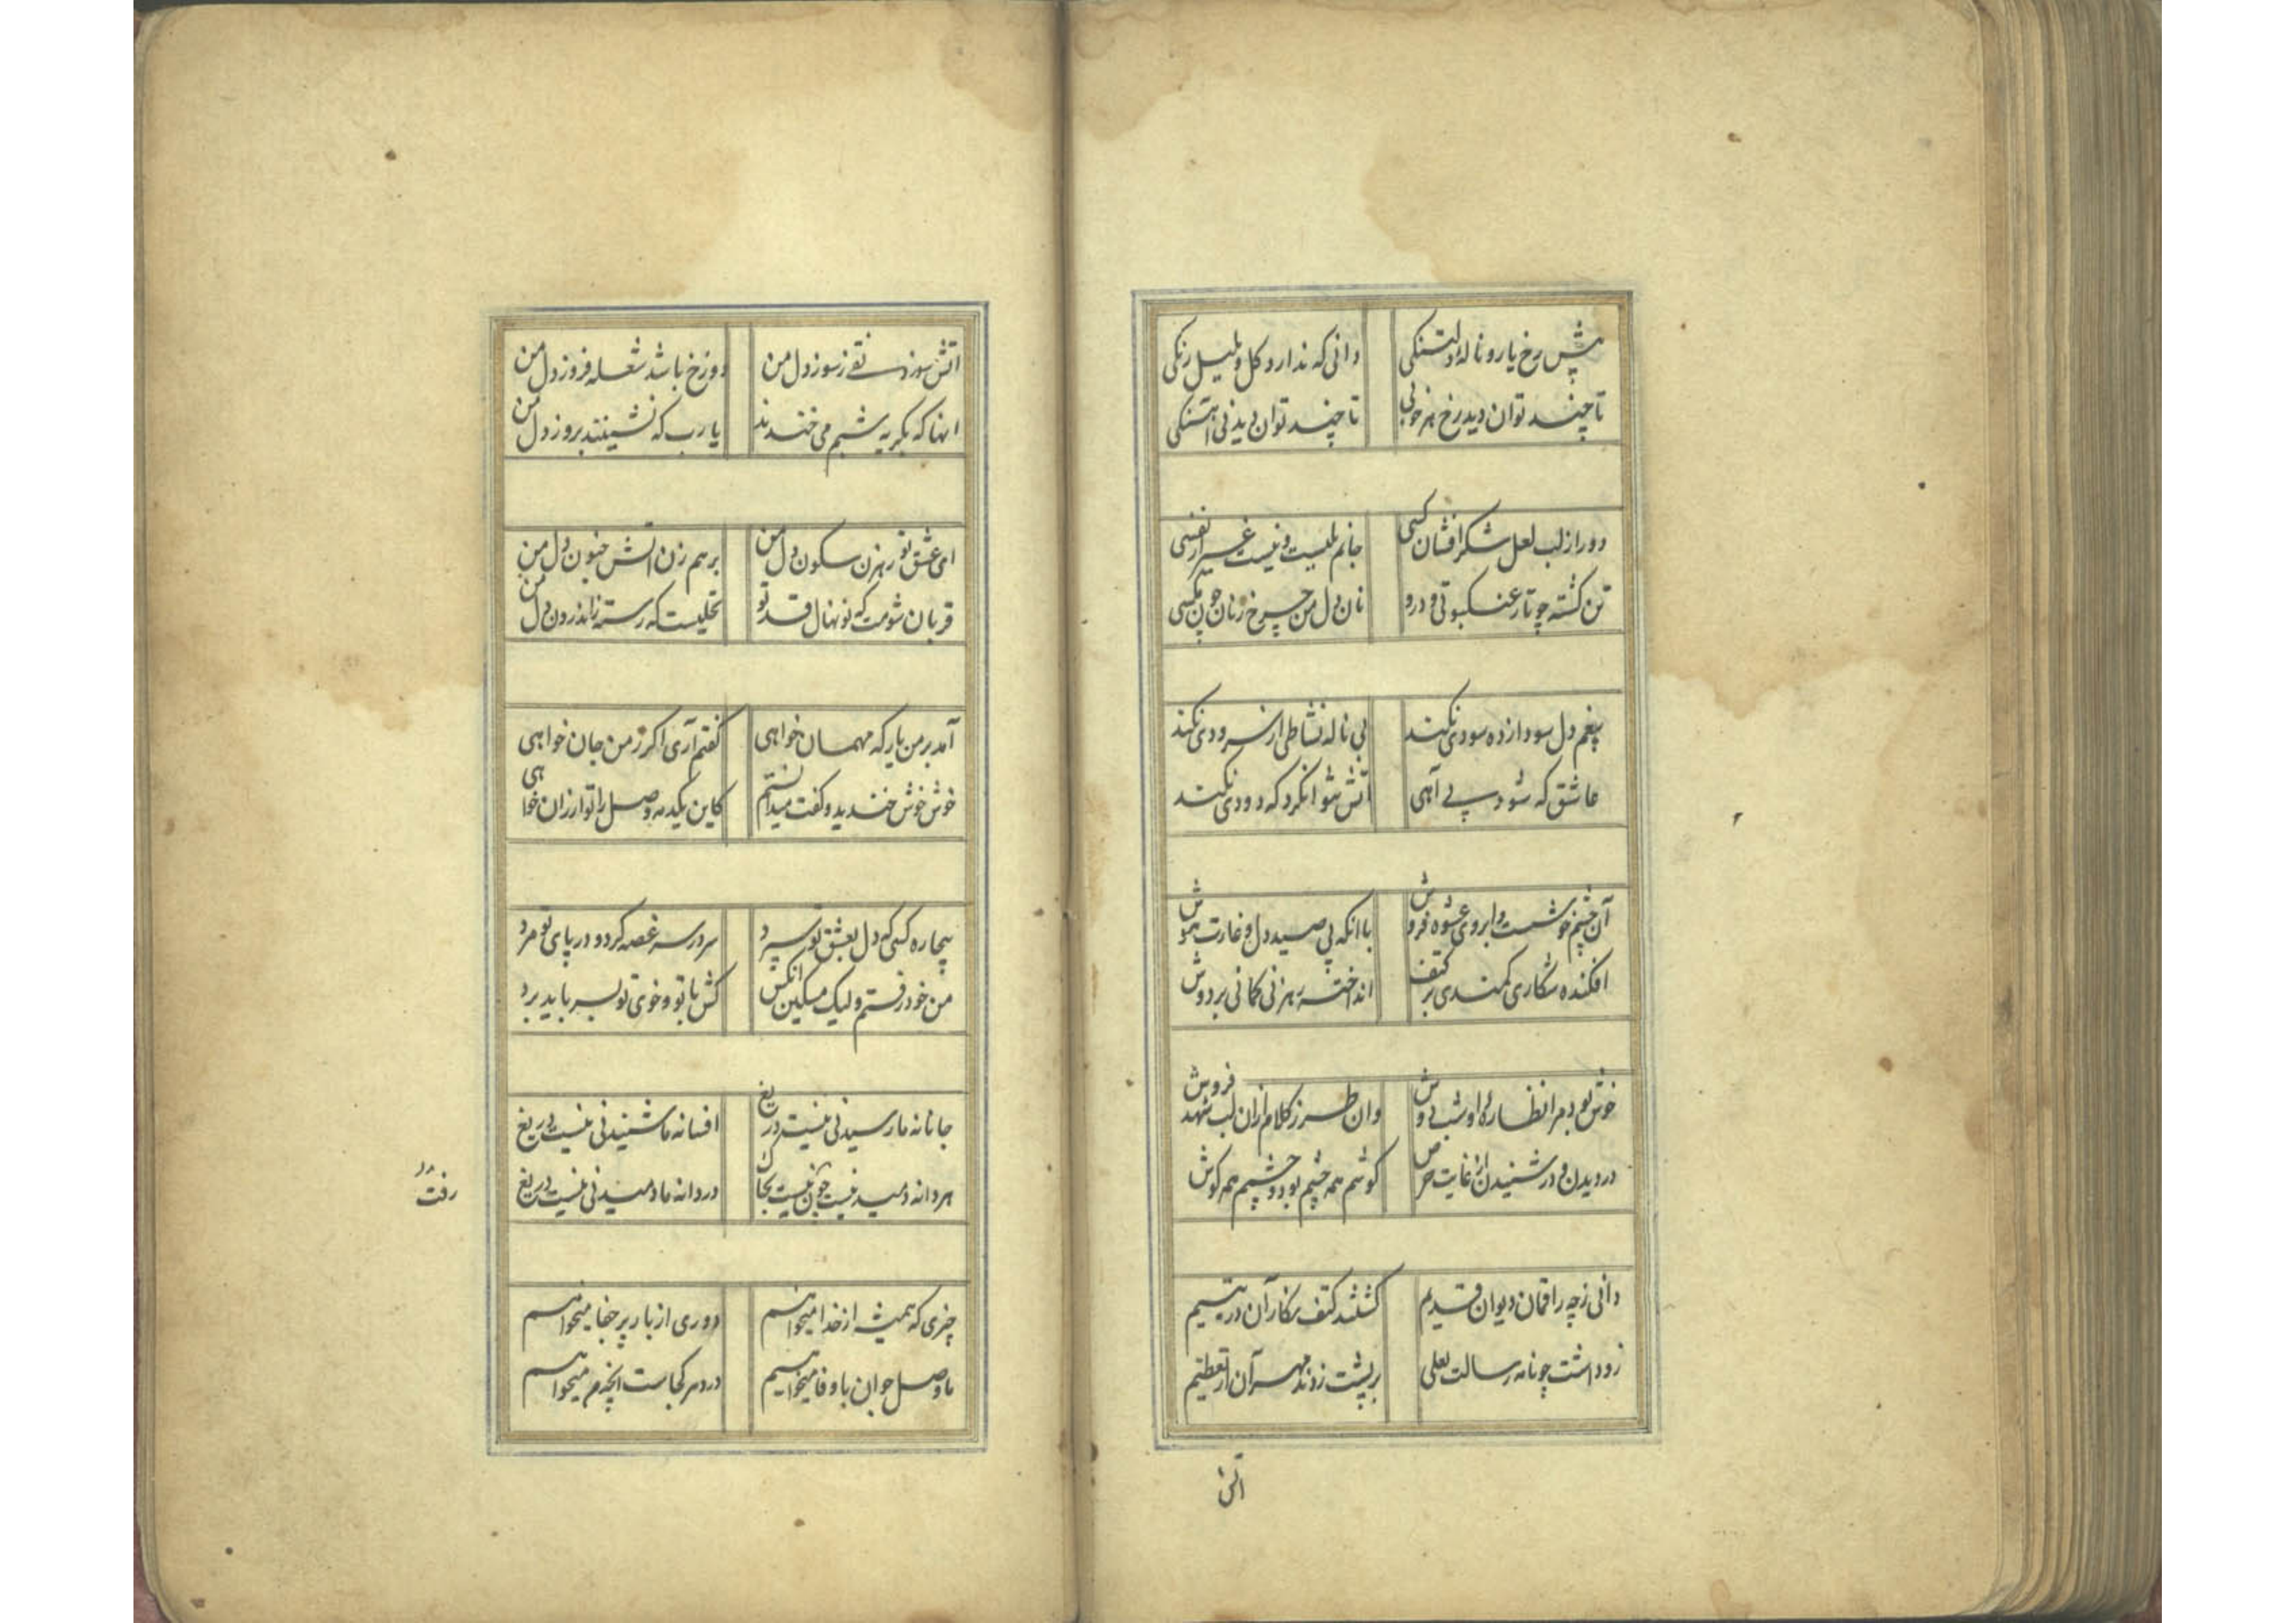 پیش رخ یار و ناله دلتنگی
دانی که ندارد گل و بلبل رنگی
تا چند توان دید رخ هر خوبی
تا چند توان دید نی اهنگی
دور از لب لعل شکر افشان کسی
جانم بلبست و نیست غیر از نفسی
تن کشته چو تار عنکبوتی و درو
نان دل من چرخ زنان چون مکسی
بیغم دل سودازده سودی نکند
بی ناله نشاطی از سرودی نکند
عاشق که شود بی آهی
آتش شوانکرد که دودی نکند
آن چشم خوشست و ابروی عشوه فروش
با آنکه پی صید دل و غارت هوش
افکنده شکاری کمندی بر کتف
انداخته رهزنی کمانی بر دوش
خوش بود مرا نظاره او شب دوش
وان طرز کلام ازان لب شهد فروش
در دیدن و در شنیدن از غایت حرص
کوشم همه چشم بود و چشمم همه کوش
دانی ز چه راقمان دیوان قدیم
کشتند کتف نکار آن در یتیم
زو داشت چو نامه رسالت یعلی
بر پشت زدند مهر آن از تعظیم
اتش
اتش سوزد نفی ز سوز دل من
دوزخ باشد شعله فروز دل من
انها که بکریه شبم می خندند
یا رب که نشینند بروز دل من
ای عشق تو رهزن سکون دل من
بر هم زن اتش جنون دل من
قربان شومت که نو نهال قد تو
نخلیست که رسته ز اندرون دل من
آمد بر من یار که مهمان خواهی
کفتم آری اکر ز من جان خواهی
خوش خوش خندید و کفت میدانستم
کاین یکدمه وصل را تو ارزان خواهی
بیچاره کسی که دل بعشق تو سپرد
سر در سر غصه کرد و در پای تو مرد
من خود رفتم ولیک مسکین انکس
کش با تو و خوی تو بسر باید برد
جانانه ما رسیدنی نیست دریغ
افسانه ما شنیدنی نیست دریغ
هر دانه دمید نیست چون نیست بخاک
دردانه ما دمیدنی نیست دریغ
چیزی که همیشه از خدا میخواهم
دوری از یار پر جفا میخواهم
ما وصل جوان با وفا میخواهیم
در دهر کجاست انچه من میخواهم
رفت